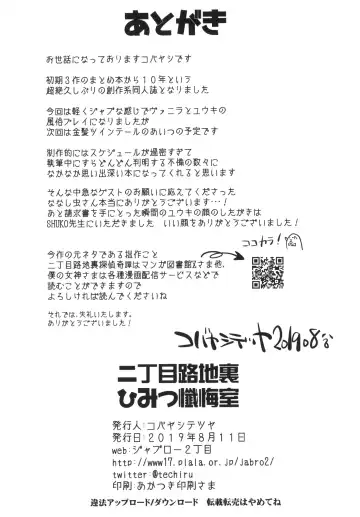 あとがき
お世話になっておりますコバヤシです
初期3作のまとめ本から10年という
超絶久しぶりの創作系同人誌となりました
今回は軽くジャブな感じでヴァニラとユウキの
風俗プレイになりましたが
次回は金髪ツインテールのあいつの予定です
制作的にはスケジュールが過密すぎて
執筆中にすらどんどん判明する不備の数々に
なかなか思い出深い本になってくれると思います
そんな中急なゲストのお願いに応えてくださった
ななし虫さん本当にありがとうございます…!
あと請求書を手にとった瞬間のユウキの顔のしたがきは
SHUKO先生にいただきました いい顔をありがとうございます!
ココカラ!
今作の元ネタである拙作こと
二丁目路地裏探偵奇譚はマンガ図書館Zさま他、
僕の女神さまは各種漫画配信サービスなどで
読むことができますので
よろしければ読んでくださいね
それでは、失礼いたします。
ありがとうございました!
コバヤシテツヤ 2019.08
二丁目路地裏
ひみつ懺悔室
発行人:コバヤシテツヤ
発行日:2019年8月11日
web:ジャブロー2丁目
http://www17.plala.or.jp/jabro2/
twitter:@techiru
印刷:あかつき印刷さま
違法アップロード/ダウンロード 転載転売はやめてね